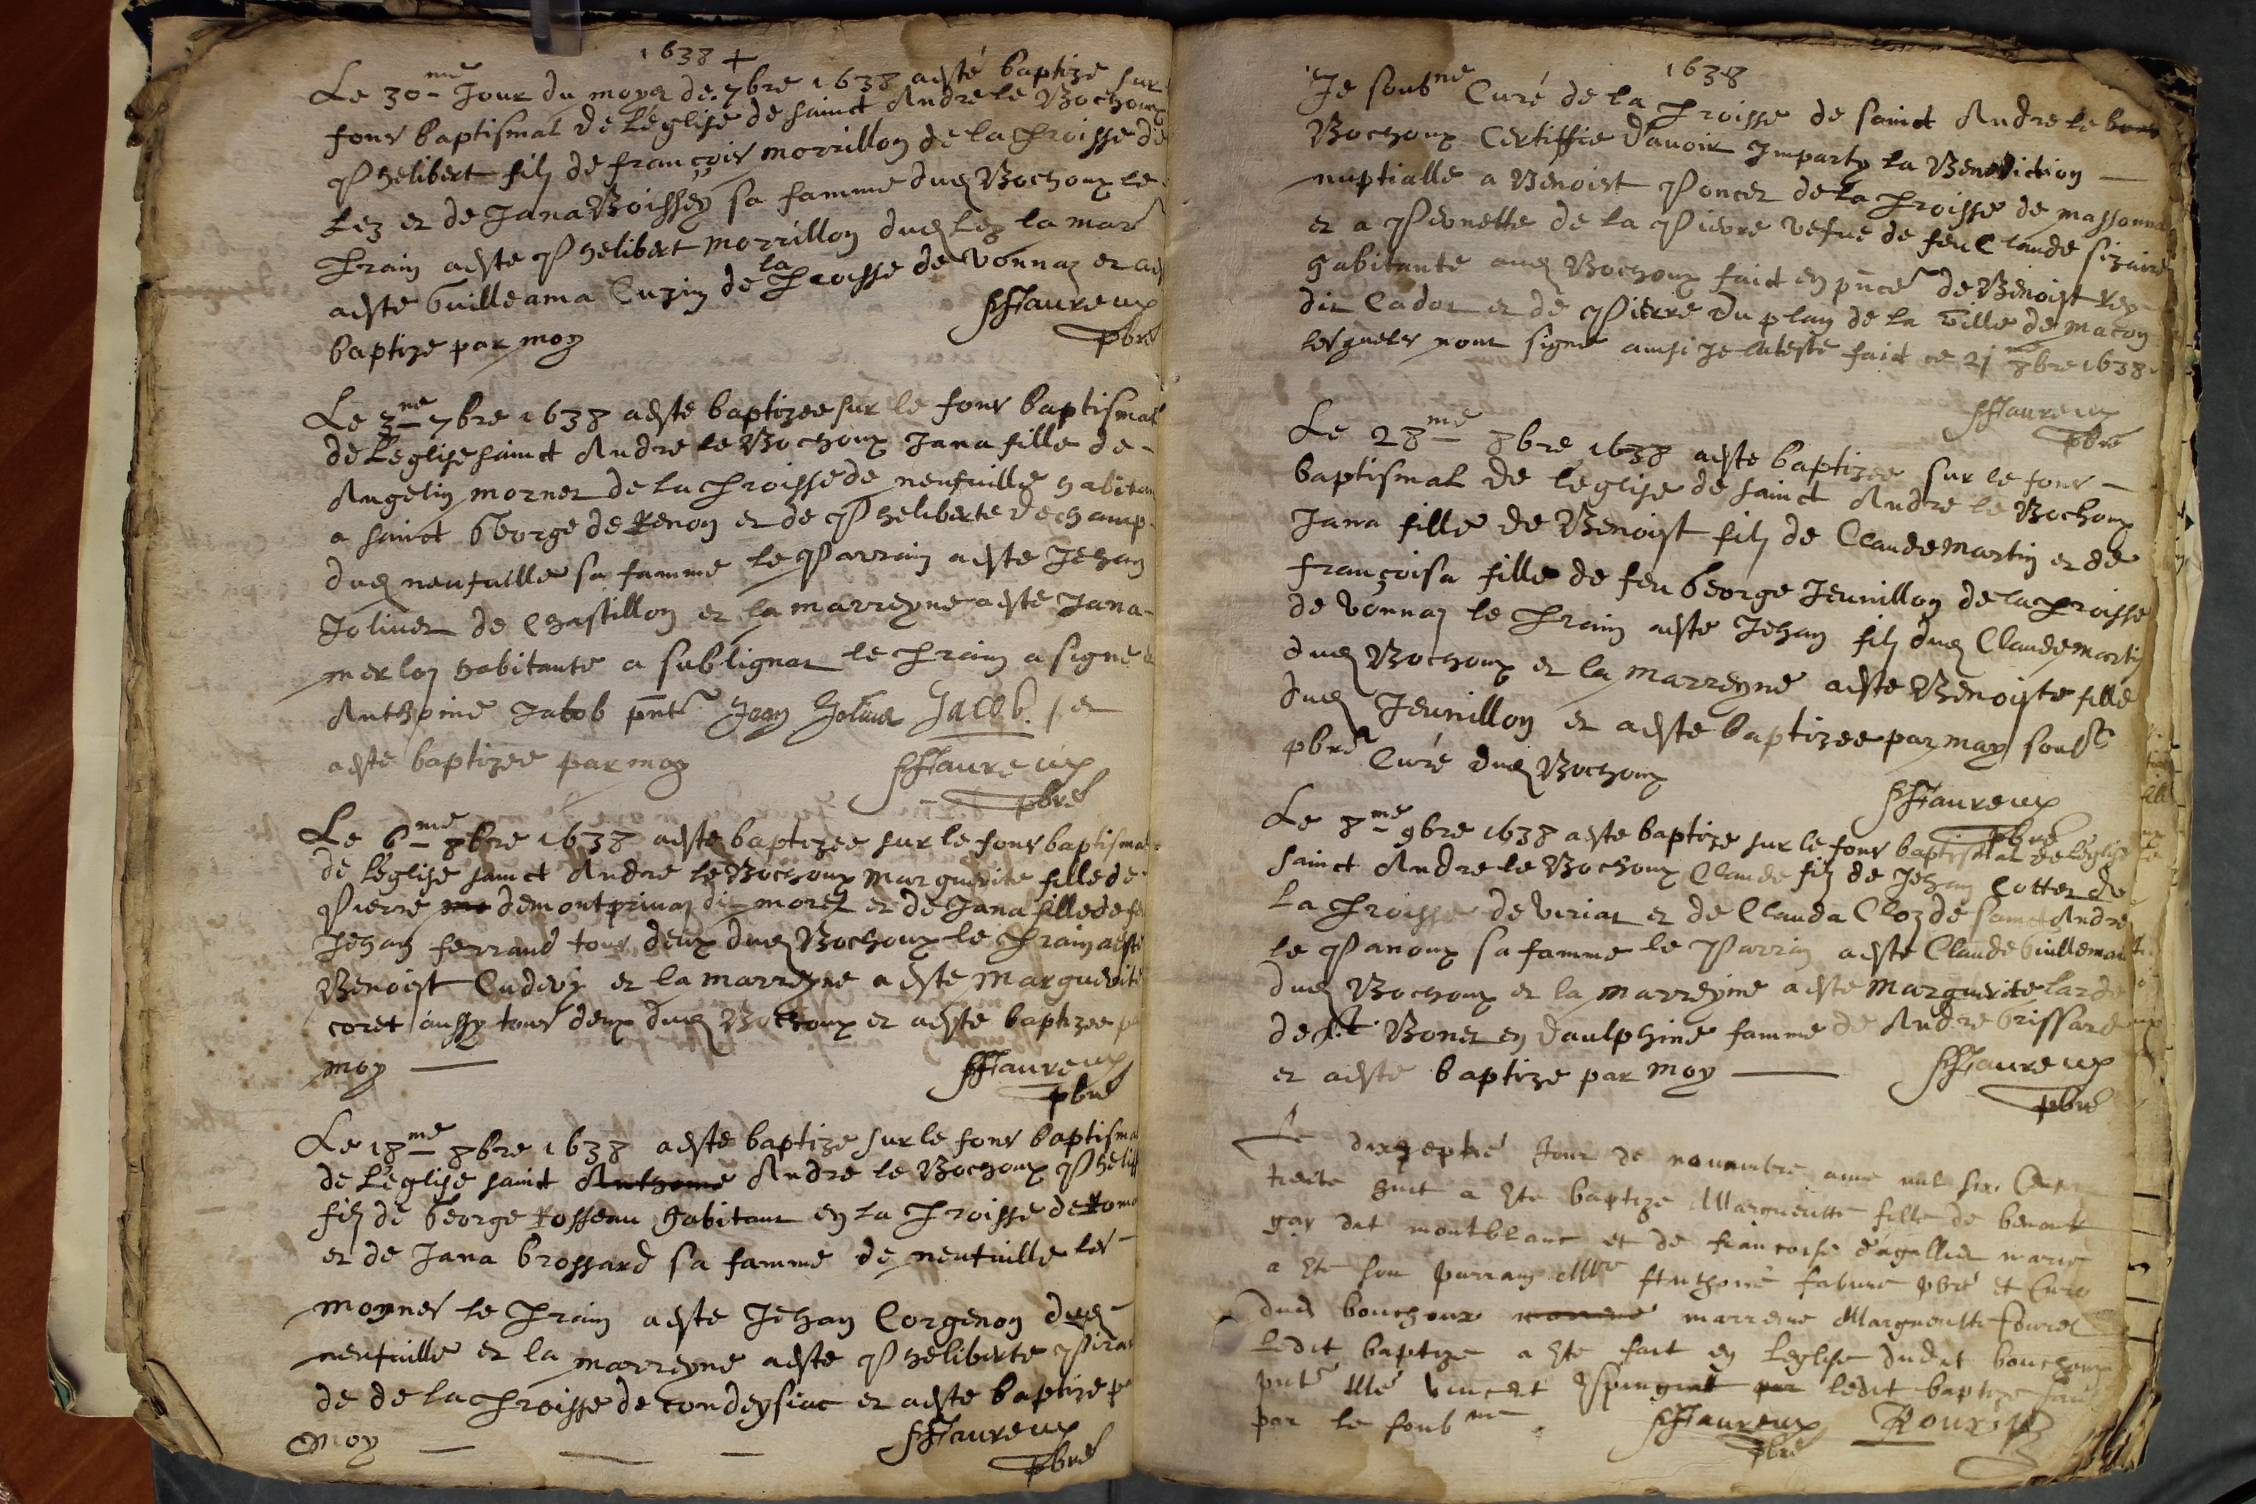 1638 +
Le 30me Jour du moys de 7bre 1638 aesté baptize sur
fons baptismal de Leglise de sainct Andre le Bochoux
Phelibert filz de françois morrillon de la Proisse de
Lez et de Jana Boissey sa famme dud Bochoux le
Prain aeste Phelibert morrillon dud Lez la mar
aeste Guilleama Cuzin de la Proisse de Vonnaz et a
baptize par moy
FFaureux
pbre
Le 3me 7bre 1638 aeste baptizee sur le fons baptismal
de Leglise sainct Andre le Bochoux Jana fille de
Angelin mornet de la Proisse de neufville habitan
a sainct George de Renon et de Pheliberte Dechamp
dud neufville sa famme le Parrain aeste Jehan
Joliuet de Chastillon et la marreyne aeste Jana
merloz habitante a sublignat le Prain a signe
Anthoine Jacob pnt Jean Joliuet Jacob. et
aeste baptizee par moy
FFaureux
pbre
Le 6me 8bre 1638 aeste baptizee sur le fons baptismal
de Leglise sainct Andre le Bochoux marguerite fille de
Pierre demontpriuaz dit moret et de Jana fille de fe
Jehan ferraud tous deux dud Bochoux le Prain aeste
Benoist Cudery et la marreyne aeste marguerite
coret aussy tous deux dud Bochoux et aeste baptizee p
moy
FFaureux
pbre
Le 18me 8bre 1638 aeste baptize sur le fons baptismal
de Leglise sainct Anthoine Andre le Bochoux Phelib
filz de George Rosseau habitant en la Proisse de Roma
et de Jana brossard sa famme de neufville les
moynes le Prain aeste Jehan Corgenon dud
neufville et la marreyne aeste Pheliberte
de de la Proisse de condeysiac et aeste baptize p
moy
FFaureux
pbre
1638
Je soubne Curé de la Proisse de sainct Andre le
Bochoux Certiffie dauoir Imparty la Benediction
nuptialle a Benoist Poncet de la Proisse de massonna
et a Peronette de la Pierre vefue de feu Claude
habitante aud Bochoux faict en pnce de Benoist Rey
dit Cadot et de Pierre Duplan de la Ville de macon
lesquels nont signe ainsi je lateste faict ce 21me 8bre 1638
FFaureux
pbre
Le 28me 8bre 1638 aeste baptizee sur le fons
baptismal de leglise de sainct Andre le Bochoux
Jana fille de Benoist filz de Claude martin et de
françoisa fille de feu George Jeunillon de la Proisse
de Vonnaz le Prain aeste Jehan filz dud Claude marti
dud Bochoux et la marreyne aeste Benoiste fille
dud Jeunillon et aeste baptizee par moy soubs
pbre Curé dud Bochoux
FFaureux
pbre
Le 8me 9bre 1638 aeste baptize sur le fons baptismal de leglise
sainct Andre le Bochoux Claude filz de Jehan Cottet de
la Proisse de Viriat et de Clauda Cloz de sainct Andre
le Panoux sa famme le Parrin aeste Claude Guillemau
dud Bochoux et la marreyne aeste marguerite Larde
de St Bonet en daulphine famme de Andre brissard
et aeste baptize par moy
FFaureux
pbre
Le dixseptié Jour de nouembre mil six Cent
trente huit a Ete baptize Marguerite fille de benoit
gay dit montblanc et de francoise
a Ete son parrain Anthoine pbre et Cure
dud bouchoux marrene Marguerite
Ledit baptize a Ete fait en leglise dudit bouchoux
pnt Vincent ledit baptize
par le soubne
FFaureux
pbre